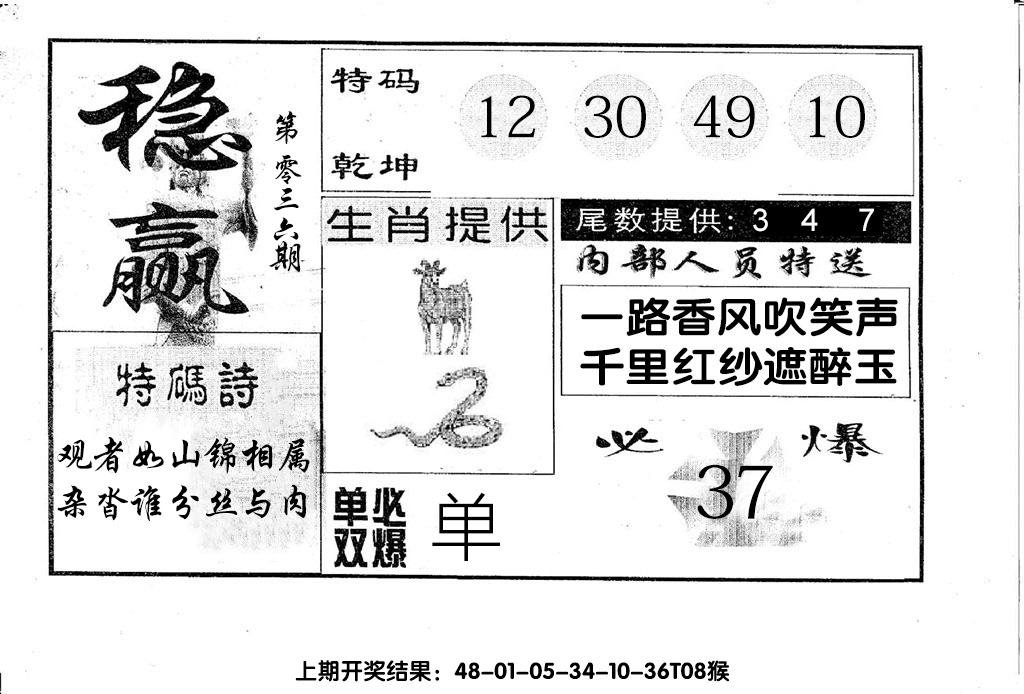 稳赢
第零三六期
特码
乾坤
12 30 49 10
生肖提供
尾数提供: 3 4 7
内部人员特送
一路香风吹笑声
千里红纱遮醉玉
特碼詩
观者如山锦相属
杂沓谁分丝与肉
单双必爆
单
必爆
37
上期开奖结果：48-01-05-34-10-36T08猴